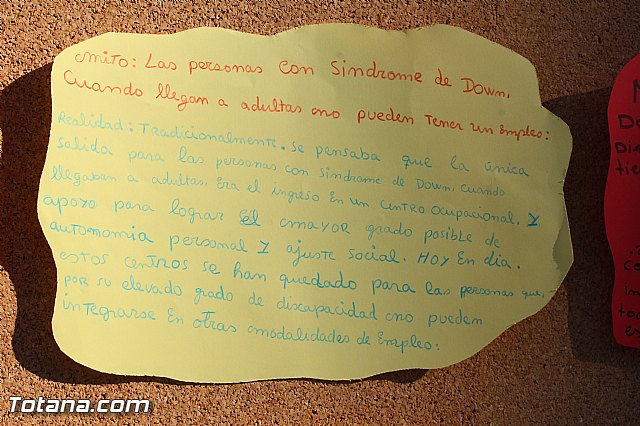 mito: Las personas con Sindrome de Down,
Cuando llegan a adultas no pueden Tener un Empleo:
Realidad: Tradicionalmente. se pensaba que la única
salida para las personas con Sindrome de Down, cuando
llegaban a adultas, Era el ingreso En un centro Ocupacional. Y
apoyo para lograr El mayor grado posible de
automomia personal Y ajuste Social. Hoy En dia.
estos centros se han quedado para las personas que,
por su elevado grado de discapacidad no pueden
integrarse En otras modalidades de Empleo:
Totana.com